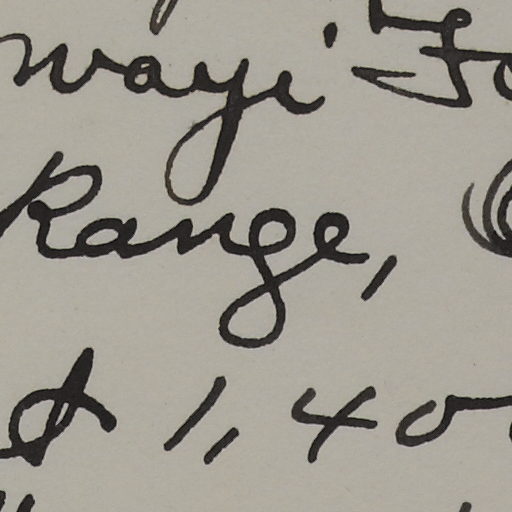 wayi Fo
Range,
& 1,40